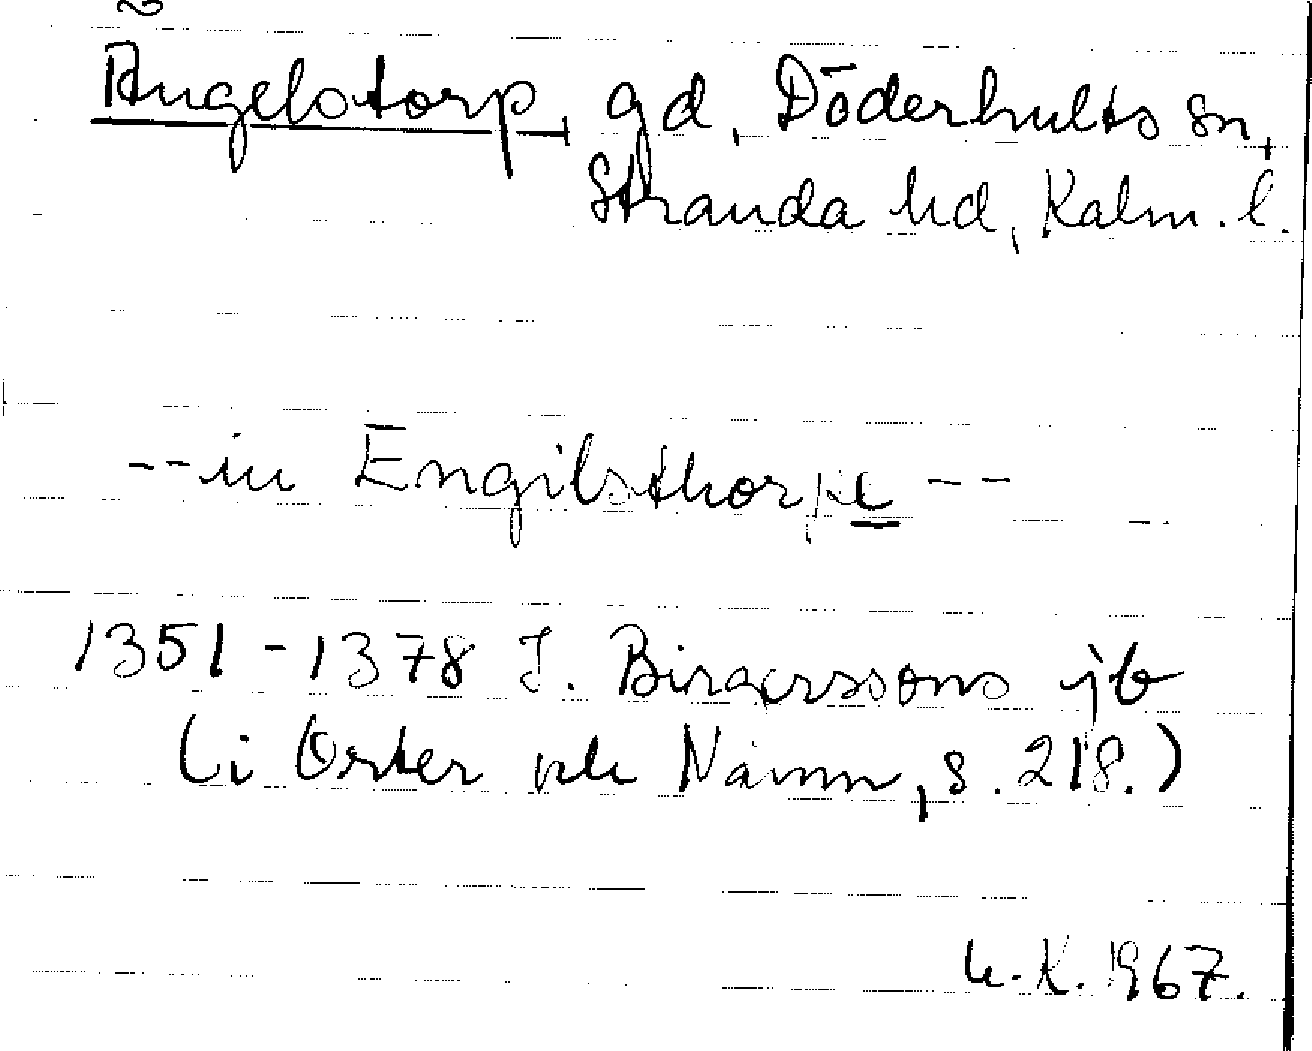 Angelstorp, gd, Döderhults sn,
Stranda hd, Kalm. l.
-- in Engilsthorpe --
1351-1378 J. Birgerssons jb
(i Orter och Namn, s. 218.)
K. 1967.